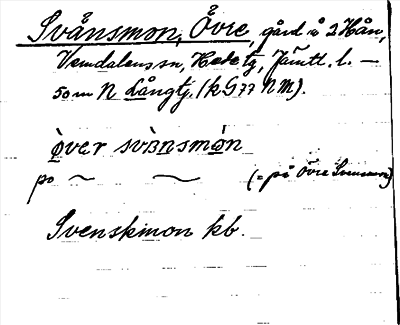 Svånsmon, Övre, gård i 2 Hån,
Vemdalens sn, Hede tg, Jämtl. l. —
50 m N Långtj. (k G 77 N M).
över svånsmòn
på ~ ~ (= på Övre Svensmon)
Svenskmon kb.